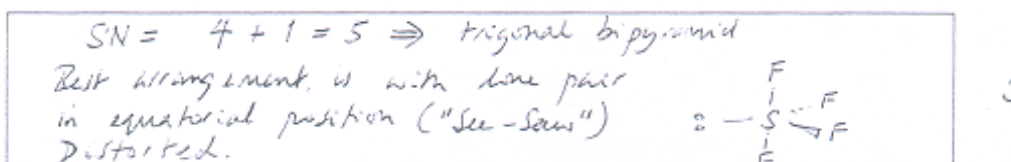 SN = 4 + 1 = 5 ⇒ trigonal bipyramid
Best arrangement is with lone pair
in equatorial position ("See-Saw")
Distorted.
F
F
: — S
F
F